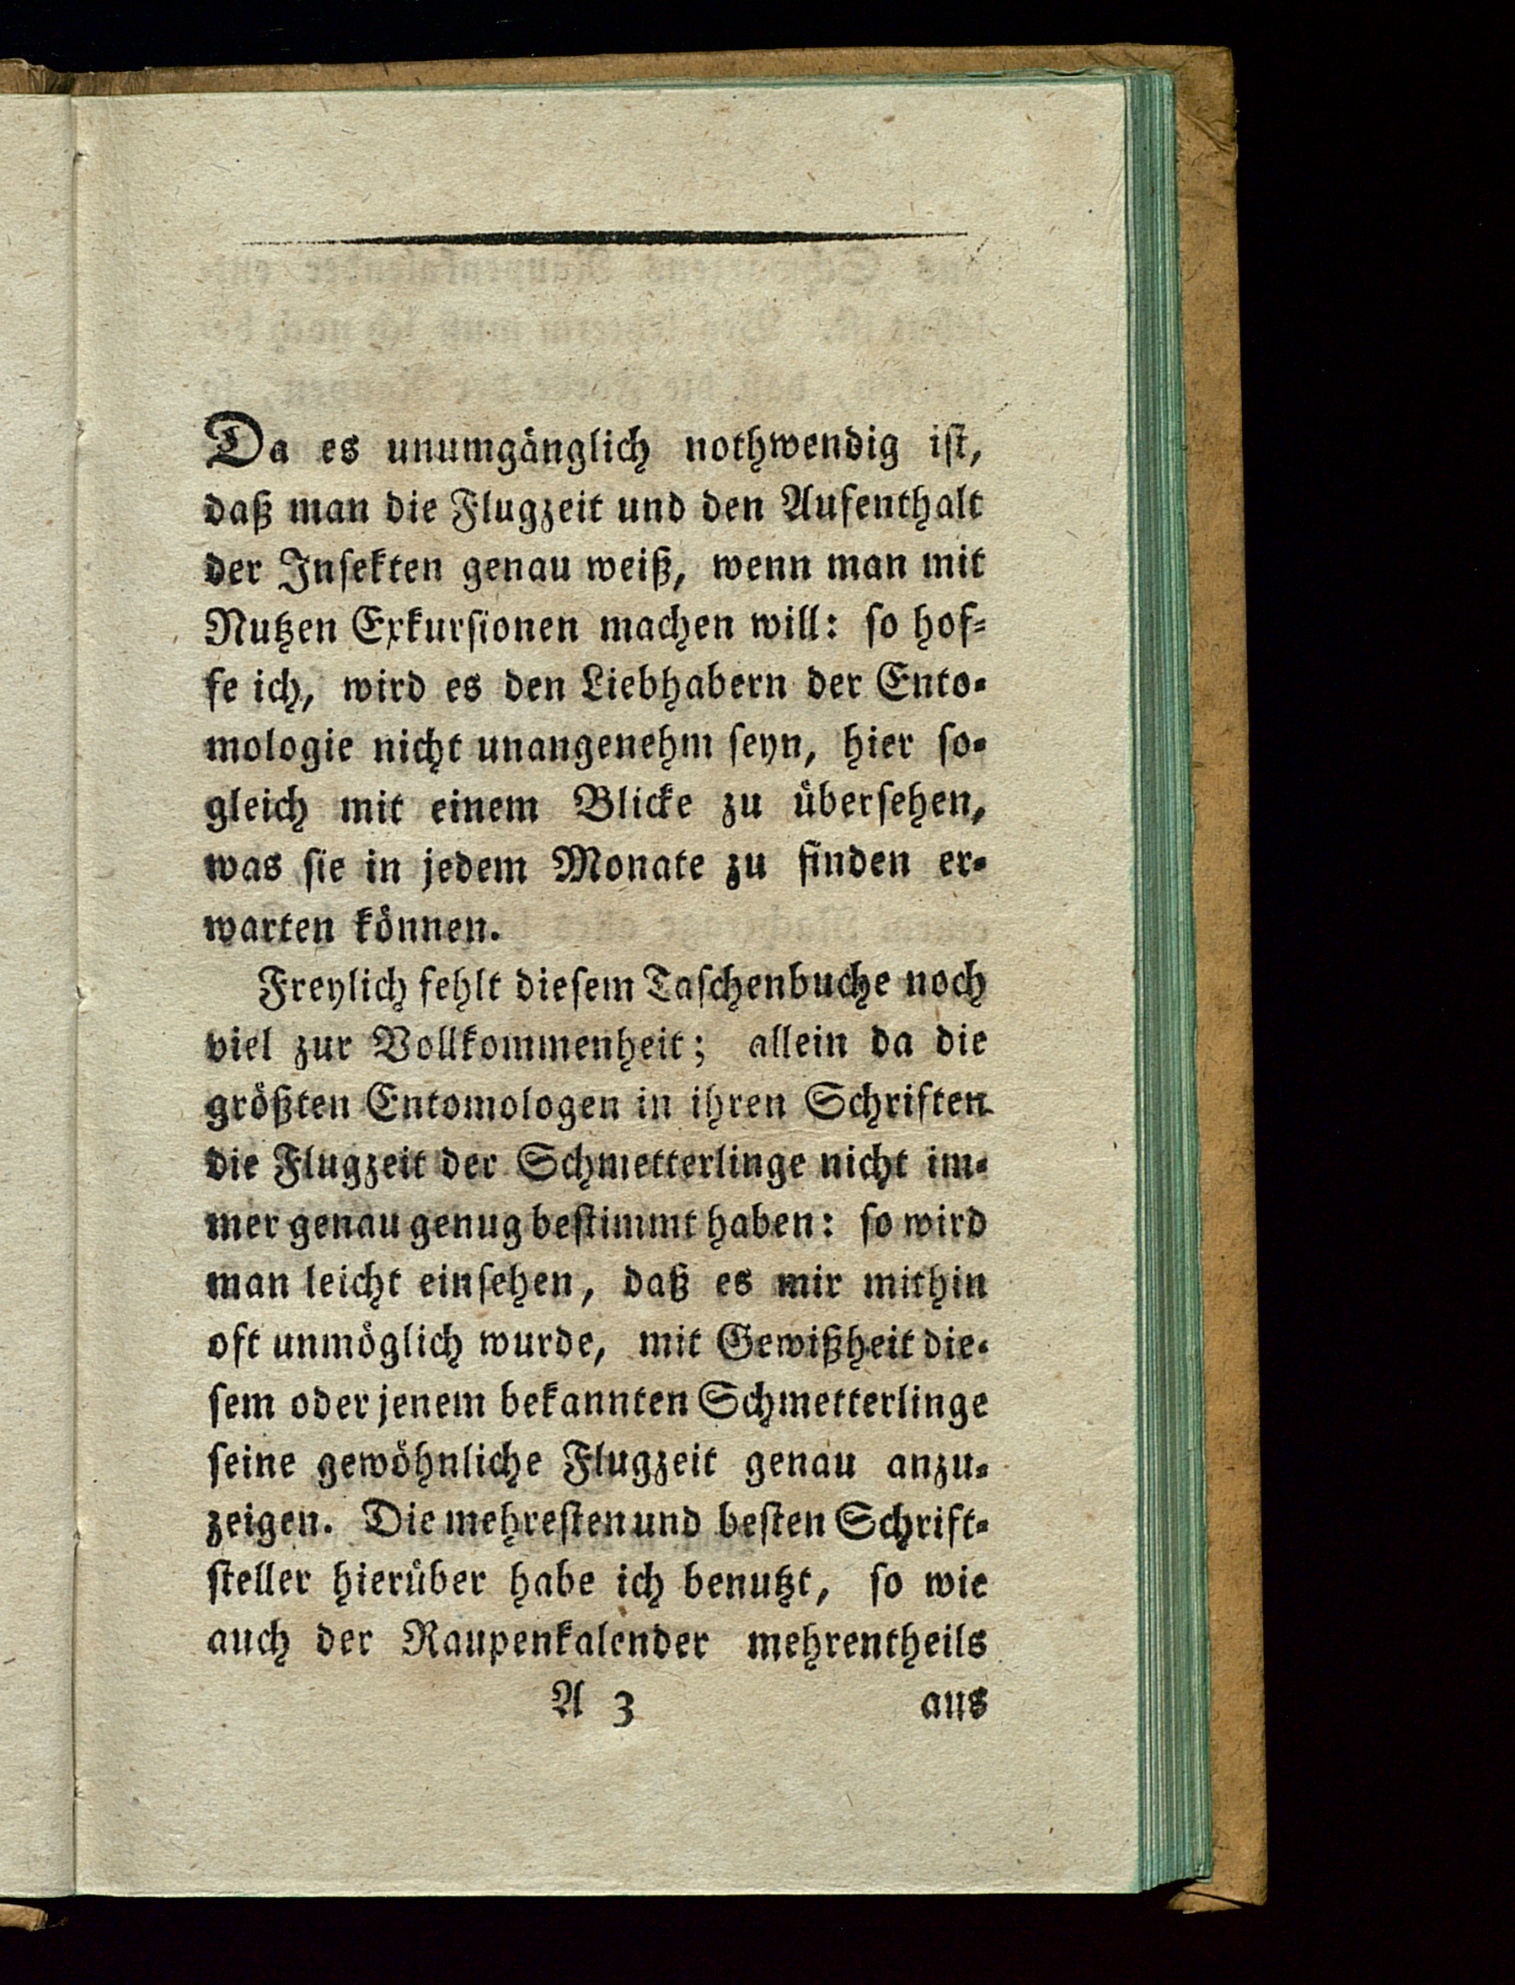 Da es unumgänglich nothwendig ist,
daß man die Flugzeit und den Aufenthalt
der Insekten genau weiß, wenn man mit
Nutzen Exkursionen machen will: so hof-
fe ich, wird es den Liebhabern der Ento-
mologie nicht unangenehm seyn, hier so-
gleich mit einem Blicke zu übersehen,
was sie in jedem Monate zu finden er-
warten können.
Freylich fehlt diesem Taschenbuche noch
viel zur Vollkommenheit; allein da die
größten Entomologen in ihren Schriften
die Flugzeit der Schmetterlinge nicht im-
mer genau genug bestimmt haben: so wird
man leicht einsehen, daß es mir mithin
oft unmöglich wurde, mit Gewißheit die-
sem oder jenem bekannten Schmetterlinge
seine gewöhnliche Flugzeit genau anzu-
zeigen. Die mehresten und besten Schrift-
steller hierüber habe ich benutzt, so wie
auch der Raupenkalender mehrentheils
A 3 aus